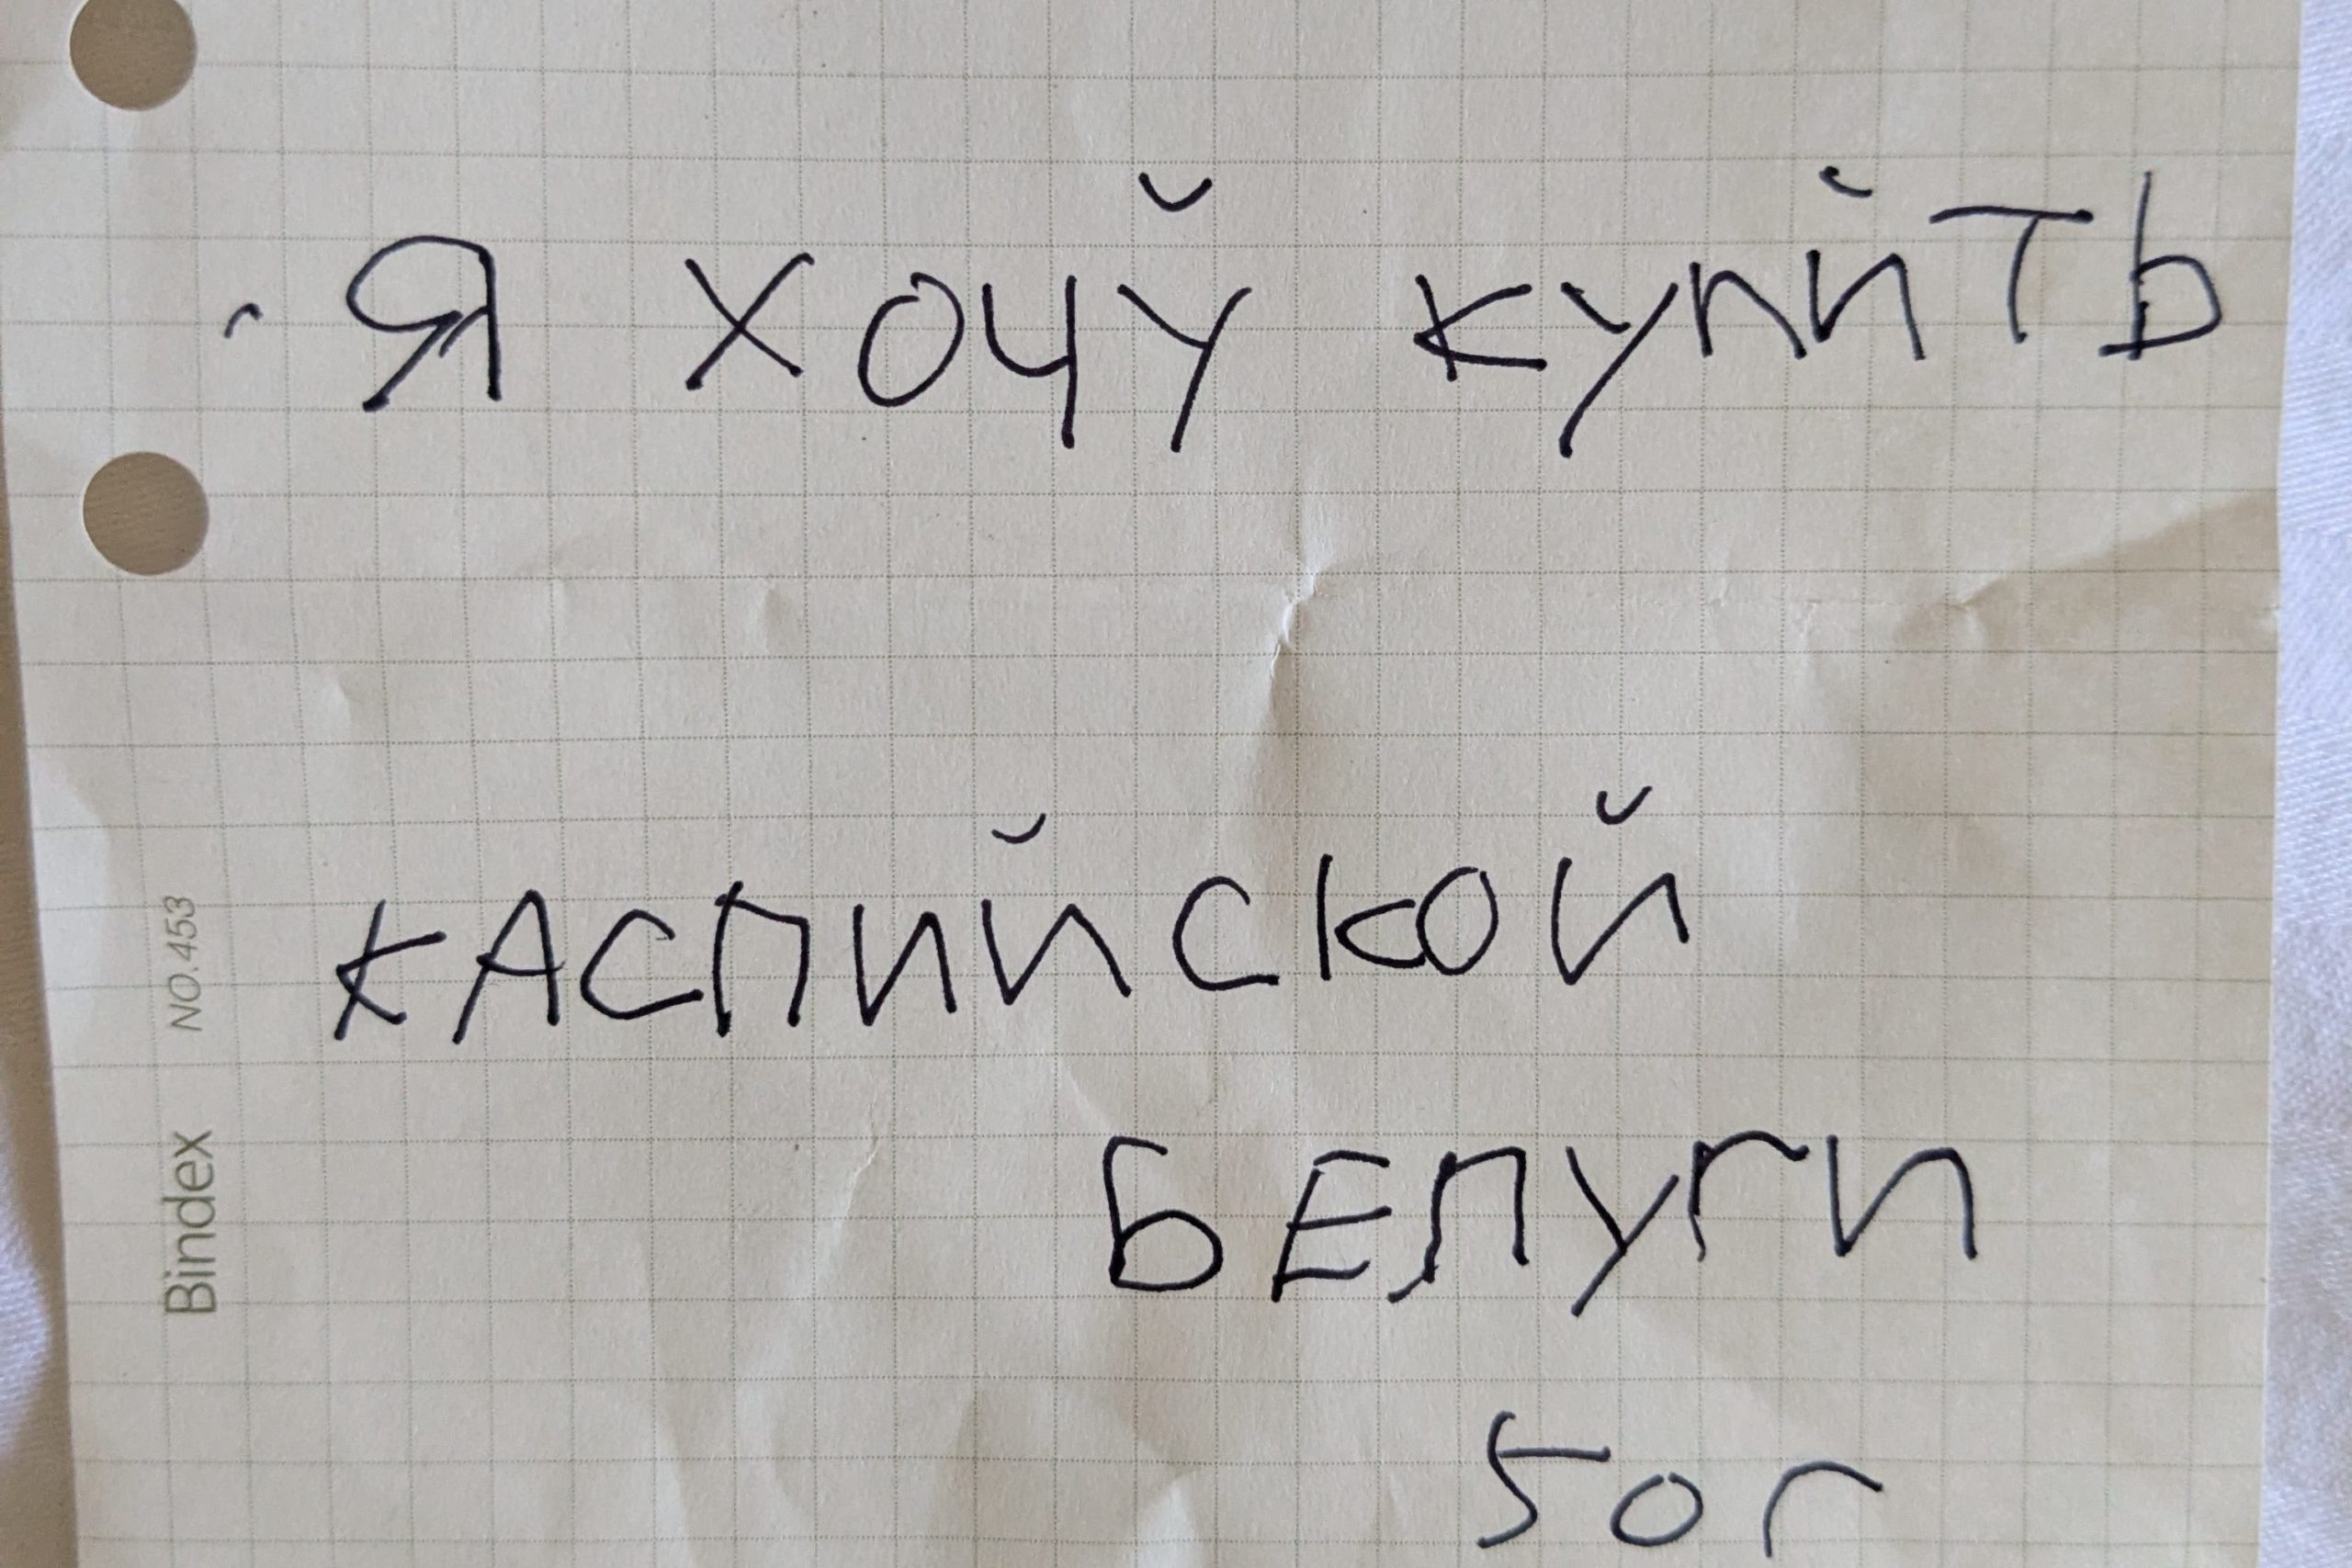 Я хочў купйть
каспийской
белуги
50г
Bindex NO.453